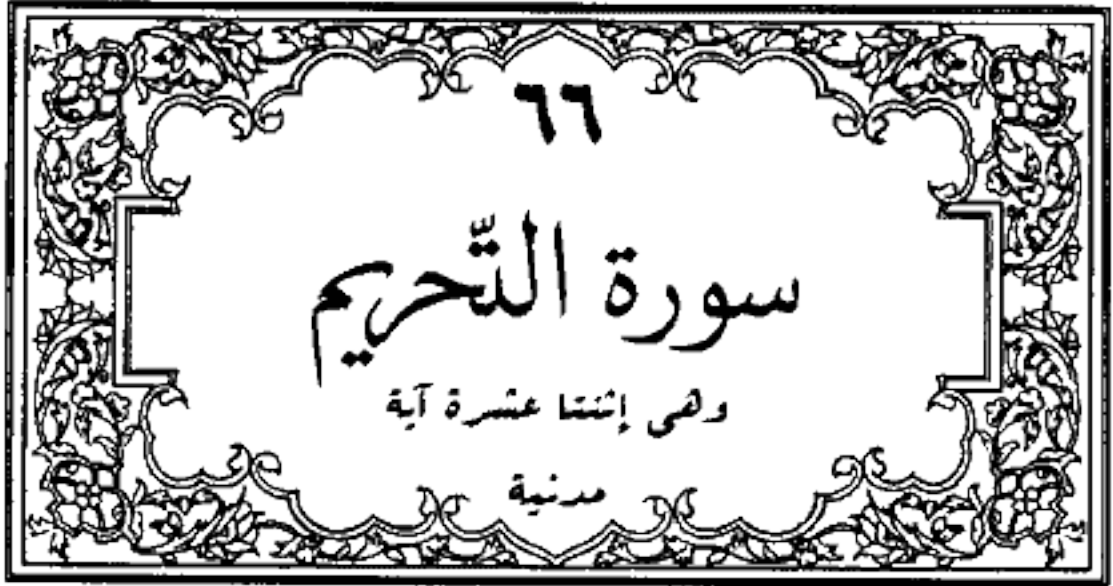 ٦٦
سورة التّحريم
وهى إثنتا عشرة آية
مدنية